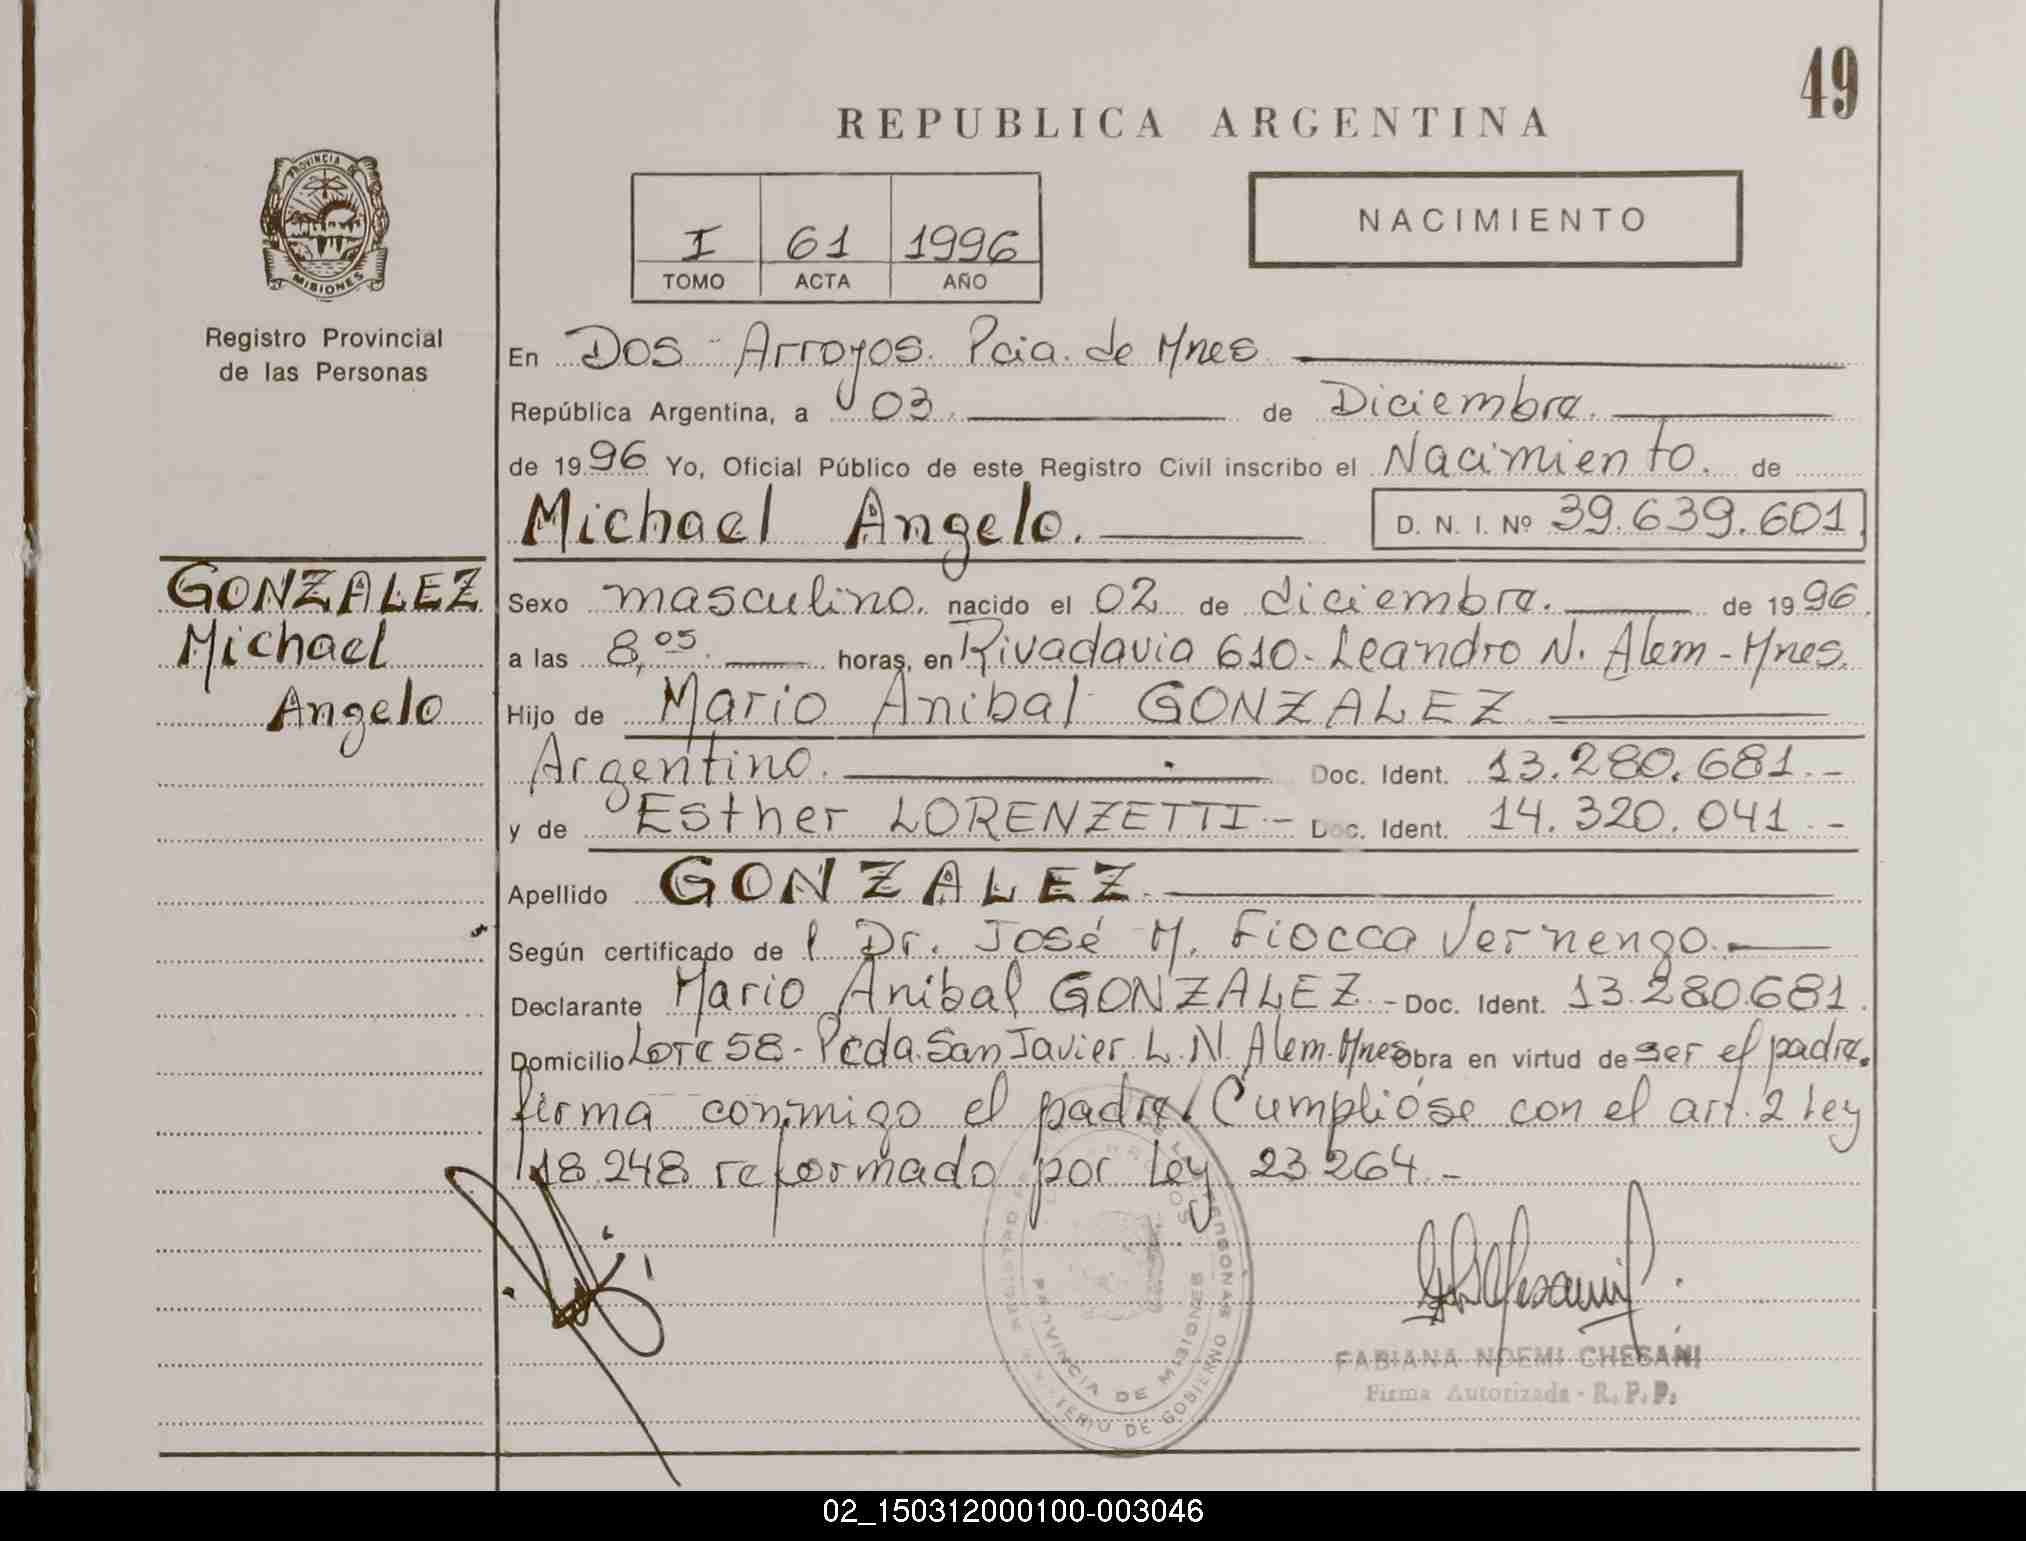 49
REPUBLICA ARGENTINA
PROVINCIA DE
MISIONES
Registro Provincial
de las Personas
I 61 1996
TOMO ACTA AÑO
NACIMIENTO
En Dos Arroyos. Pcia. de Mnes
República Argentina, a 03. de Diciembre.
de 1996 Yo, Oficial Público de este Registro Civil inscribo el Nacimiento. de
Michael Angelo. D. N. I. Nº 39.639.601
GONZALEZ
Michael
Angelo
Sexo masculino. nacido el 02 de diciembre. de 1996
a las 8,05. horas, en Rivadavia 610-Leandro N. Alem-Mnes.
Hijo de Mario Anibal GONZALEZ
Argentino. Doc. Ident. 13.280.681.-
y de Esther LORENZETTI- Doc. Ident. 14.320.041.-
Apellido GONZALEZ.
Según certificado de l Dr. José M. Fiocca Vernengo.
Declarante Mario Anibal GONZALEZ.- Doc. Ident. 13.280.681.
Domicilio Lote 58-Pcda. San Javier. L. N. Alem-Mnes obra en virtud de ser el padre.
firma conmigo el padre. Cumplióse con el art. 2 Ley
18.248 reformado por Ley 23264.-
PROVINCIA DE MISIONES
MINISTERIO DE GOBIERNO
FABIANA NOEMI CHESANI
Firma Autorizada - R. P. P.
02_150312000100-003046